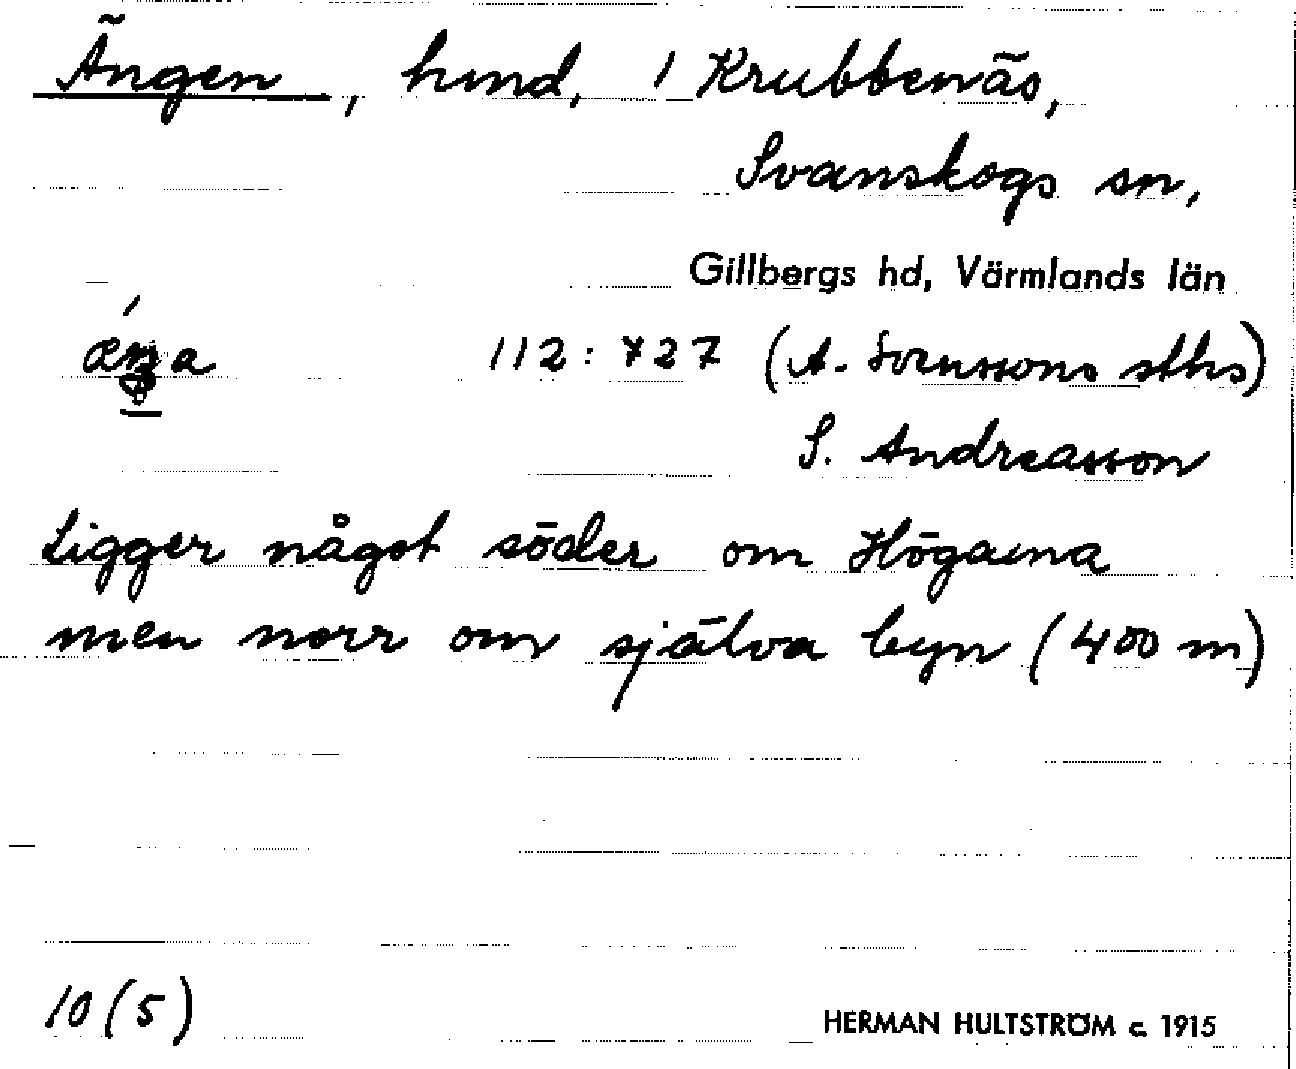 Ängen, hmd, 1 Krubbenäs,
Svanskogs sn,
Gillbergs hd, Värmlands län
112:727 (A. Svenssons sths)
S. Andreasson
Ligger något söder om Högarna
men norr om själva byn (400 m)
10(5)
HERMAN HULTSTRÖM c. 1915